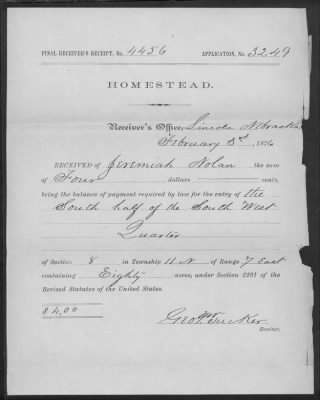 FINAL RECEIVER'S RECEIPT, No. 4456 APPLICATION, No. 3249
HOMESTEAD.
Receiver's Office, Lincoln Nebraska
February 3d, 1876
RECEIVED of Jeremiah Nolan the sum
of Four dollars cents,
being the balance of payment required by law for the entry of the
South half of the South West
Quarter
of Section 8 in Township 11 N of Range 7 East
containing Eighty acres, under Section 2291 of the
Revised Statutes of the United States.
$4,00
Geo P Tucker
Receiver.